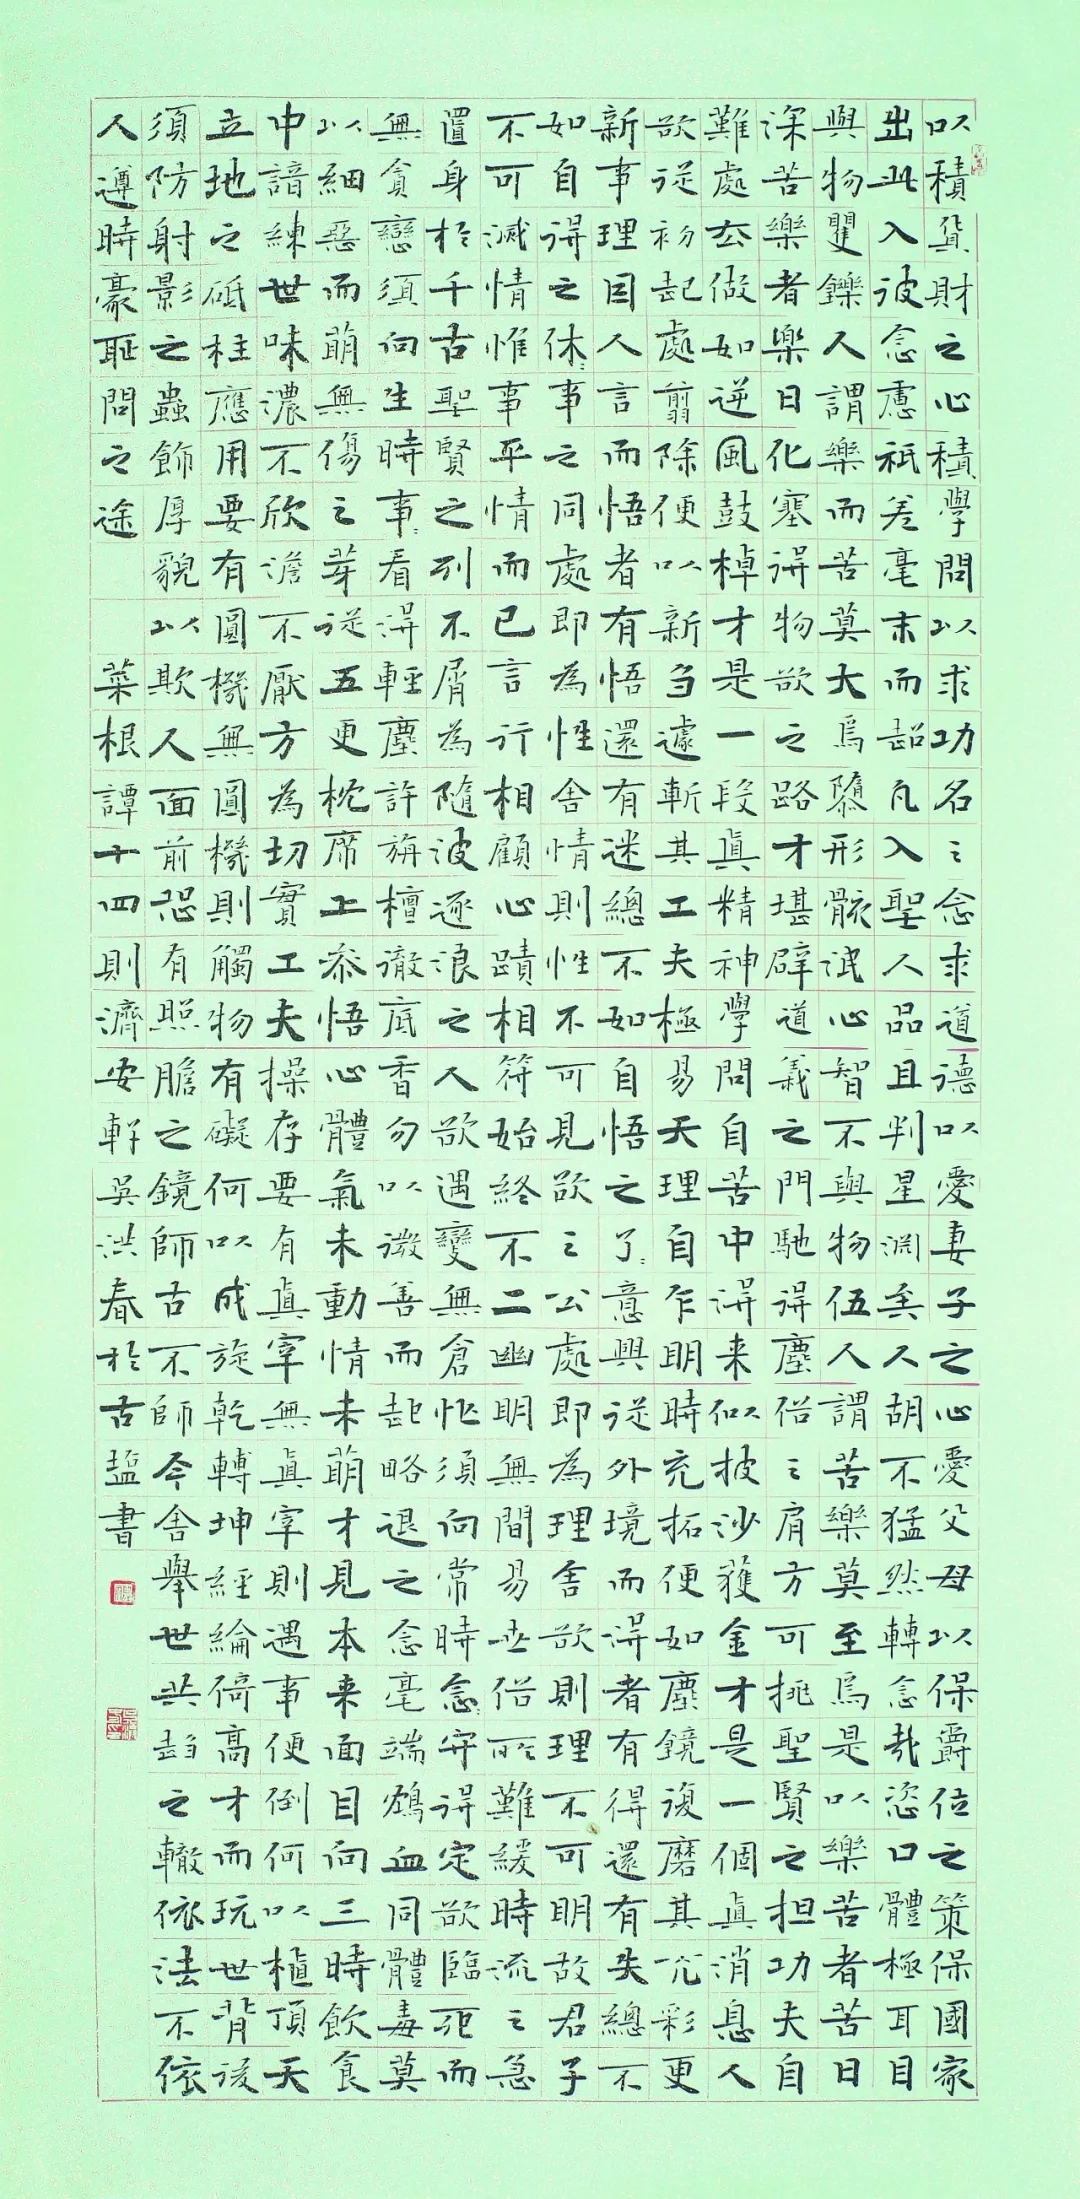 以積貨財之心積學問以求功名之念求道德以愛妻子之心愛父母以保爵位之策保國家
出此入彼念慮祇差毫末而超凡入聖人品且判星淵矣人胡不猛然轉念哉恣口體極耳目
與物矍鑠人謂樂而苦莫大焉隳形骸泯心智不與物伍人謂苦樂莫至焉是以樂苦者苦日
深苦樂者樂日化塞得物欲之路才堪辟道義之門馳得塵俗之肩方可挑聖賢之担功夫自
難處去做如逆風鼓棹才是一段真精神學問自苦中得来似披沙獲金才是一個真消息人
欲從初起處翦除便以新芻遽斬其工夫極易天理自乍明時充拓便如塵鏡復磨其光彩更
新事理因人言而悟者有悟還有迷總不如自悟之了〻意興從外境而得者有得還有失總不
如自得之休〻事之同處即為性舍情則性不可見欲之公處即為理舍欲則理不可明故君子
不可滅情惟事平情而已言行相顧心蹟相符始終不二幽明無間易世俗所難緩時流之急
置身於千古聖賢之列不屑為隨波逐浪之人欲遇變無倉忙須向常時念〻守得定欲臨死而
無貪戀須向生時事〻看得輕塵許旃檀徹底香勿以微善而起略退之念毫端鴆血同體毒莫
以細惡而萌無傷之芽從五更枕席上参悟心體氣未動情未萌才見本来面目向三時飲食
中諳練世味濃不欣澹不厭方為切實工夫操存要有真宰無真宰則遇事便倒何以植頂天
立地之砥柱應用要有圓機無圓機則觸物有礙何以成旋乾轉坤經綸倚高才而玩世背後
須防射影之蟲飾厚貌以欺人面前恐有照膽之鏡師古不師今舍舉世共趋之轍依法不依
人遵時豪耻問之途 菜根譚十四則濟安軒吳洪春於古盐書